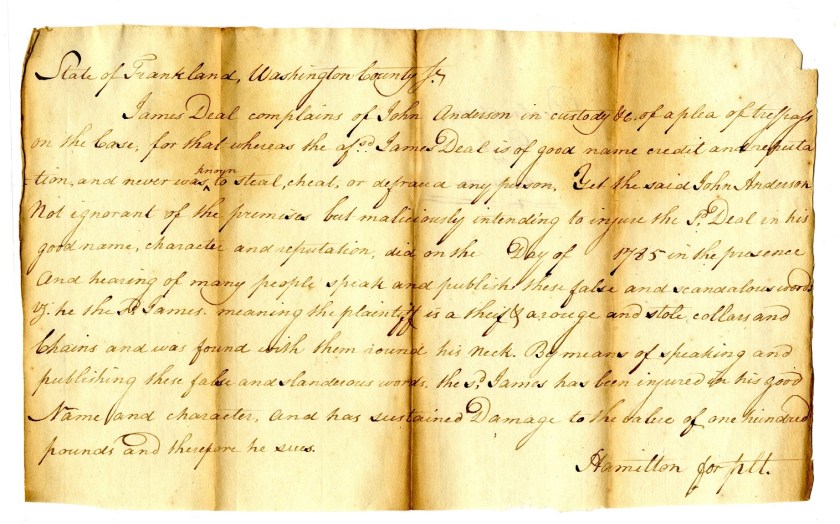 State of Frankland, Washington County Sc.
James Deal complains of John Anderson in custody &c. of a plea of trespass
on the Case, for that whereas the afsd. James Deal is of good name credit and reputa
tion, and never was known to steal, cheat, or defraud any person. Yet the said John Anderson
Not ignorant of the premises but maliciously intending to injure the sd. Deal in his
good name, character and reputation, did on the Day of 1785 in the presence
And hearing of many people speak and publish these false and scandalous words
vz: he the sd. James. meaning the plaintiff is a theif & a rouge and stole collars and
Chains and was found with them round his neck. By means of speaking and
publishing these false and slanderous words, the sd. James has been injured in his good
Name and character, and has sustained Damage to the value of one hundred
pounds and therefore he sues.
Hamilton for plt.